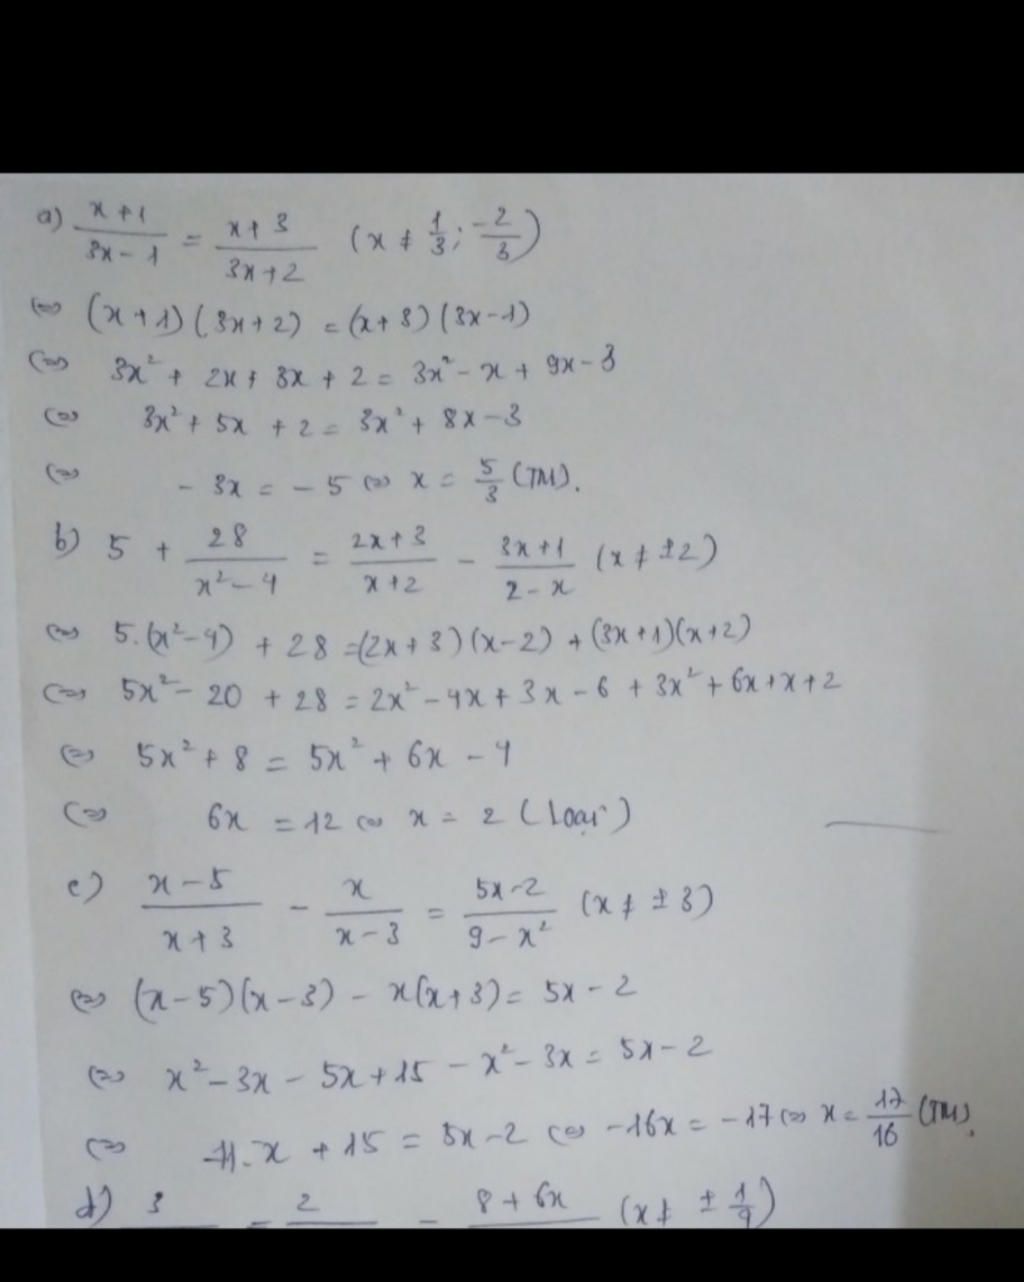 a) (x+1)/(3x-1) = (x+3)/(3x+2) (x ≠ 1/3; -2/3)
⇔ (x+1)(3x+2) = (x+3)(3x-1)
⇔ 3x² + 2x + 3x + 2 = 3x² - x + 9x - 3
⇔ 3x² + 5x + 2 = 3x² + 8x - 3
⇔ - 3x = - 5 ⇔ x = 5/3 (TM).
b) 5 + 28/(x² - 4) = (2x+3)/(x+2) - (3x+1)/(2-x) (x ≠ ±2)
⇔ 5.(x²-4) + 28 = (2x+3)(x-2) + (3x+1)(x+2)
⇔ 5x² - 20 + 28 = 2x² - 4x + 3x - 6 + 3x² + 6x + x + 2
⇔ 5x² + 8 = 5x² + 6x - 4
⇔ 6x = 12 ⇔ x = 2 (Loại)
c) (x-5)/(x+3) - x/(x-3) = (5x-2)/(9-x²) (x ≠ ±3)
⇔ (x-5)(x-3) - x(x+3) = 5x - 2
⇔ x² - 3x - 5x + 15 - x² - 3x = 5x - 2
⇔ -11.x + 15 = 5x - 2 ⇔ -16x = -17 ⇔ x = 17/16 (TM).
d) 3 = 2 - 8 + 6x (x ≠ ± 1/4)